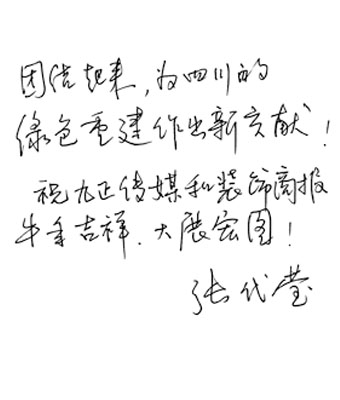 团结起来，为四川的
绿色重建作出新贡献！
祝九正传媒和装饰商报
牛年吉祥．大展宏图！
张代莹